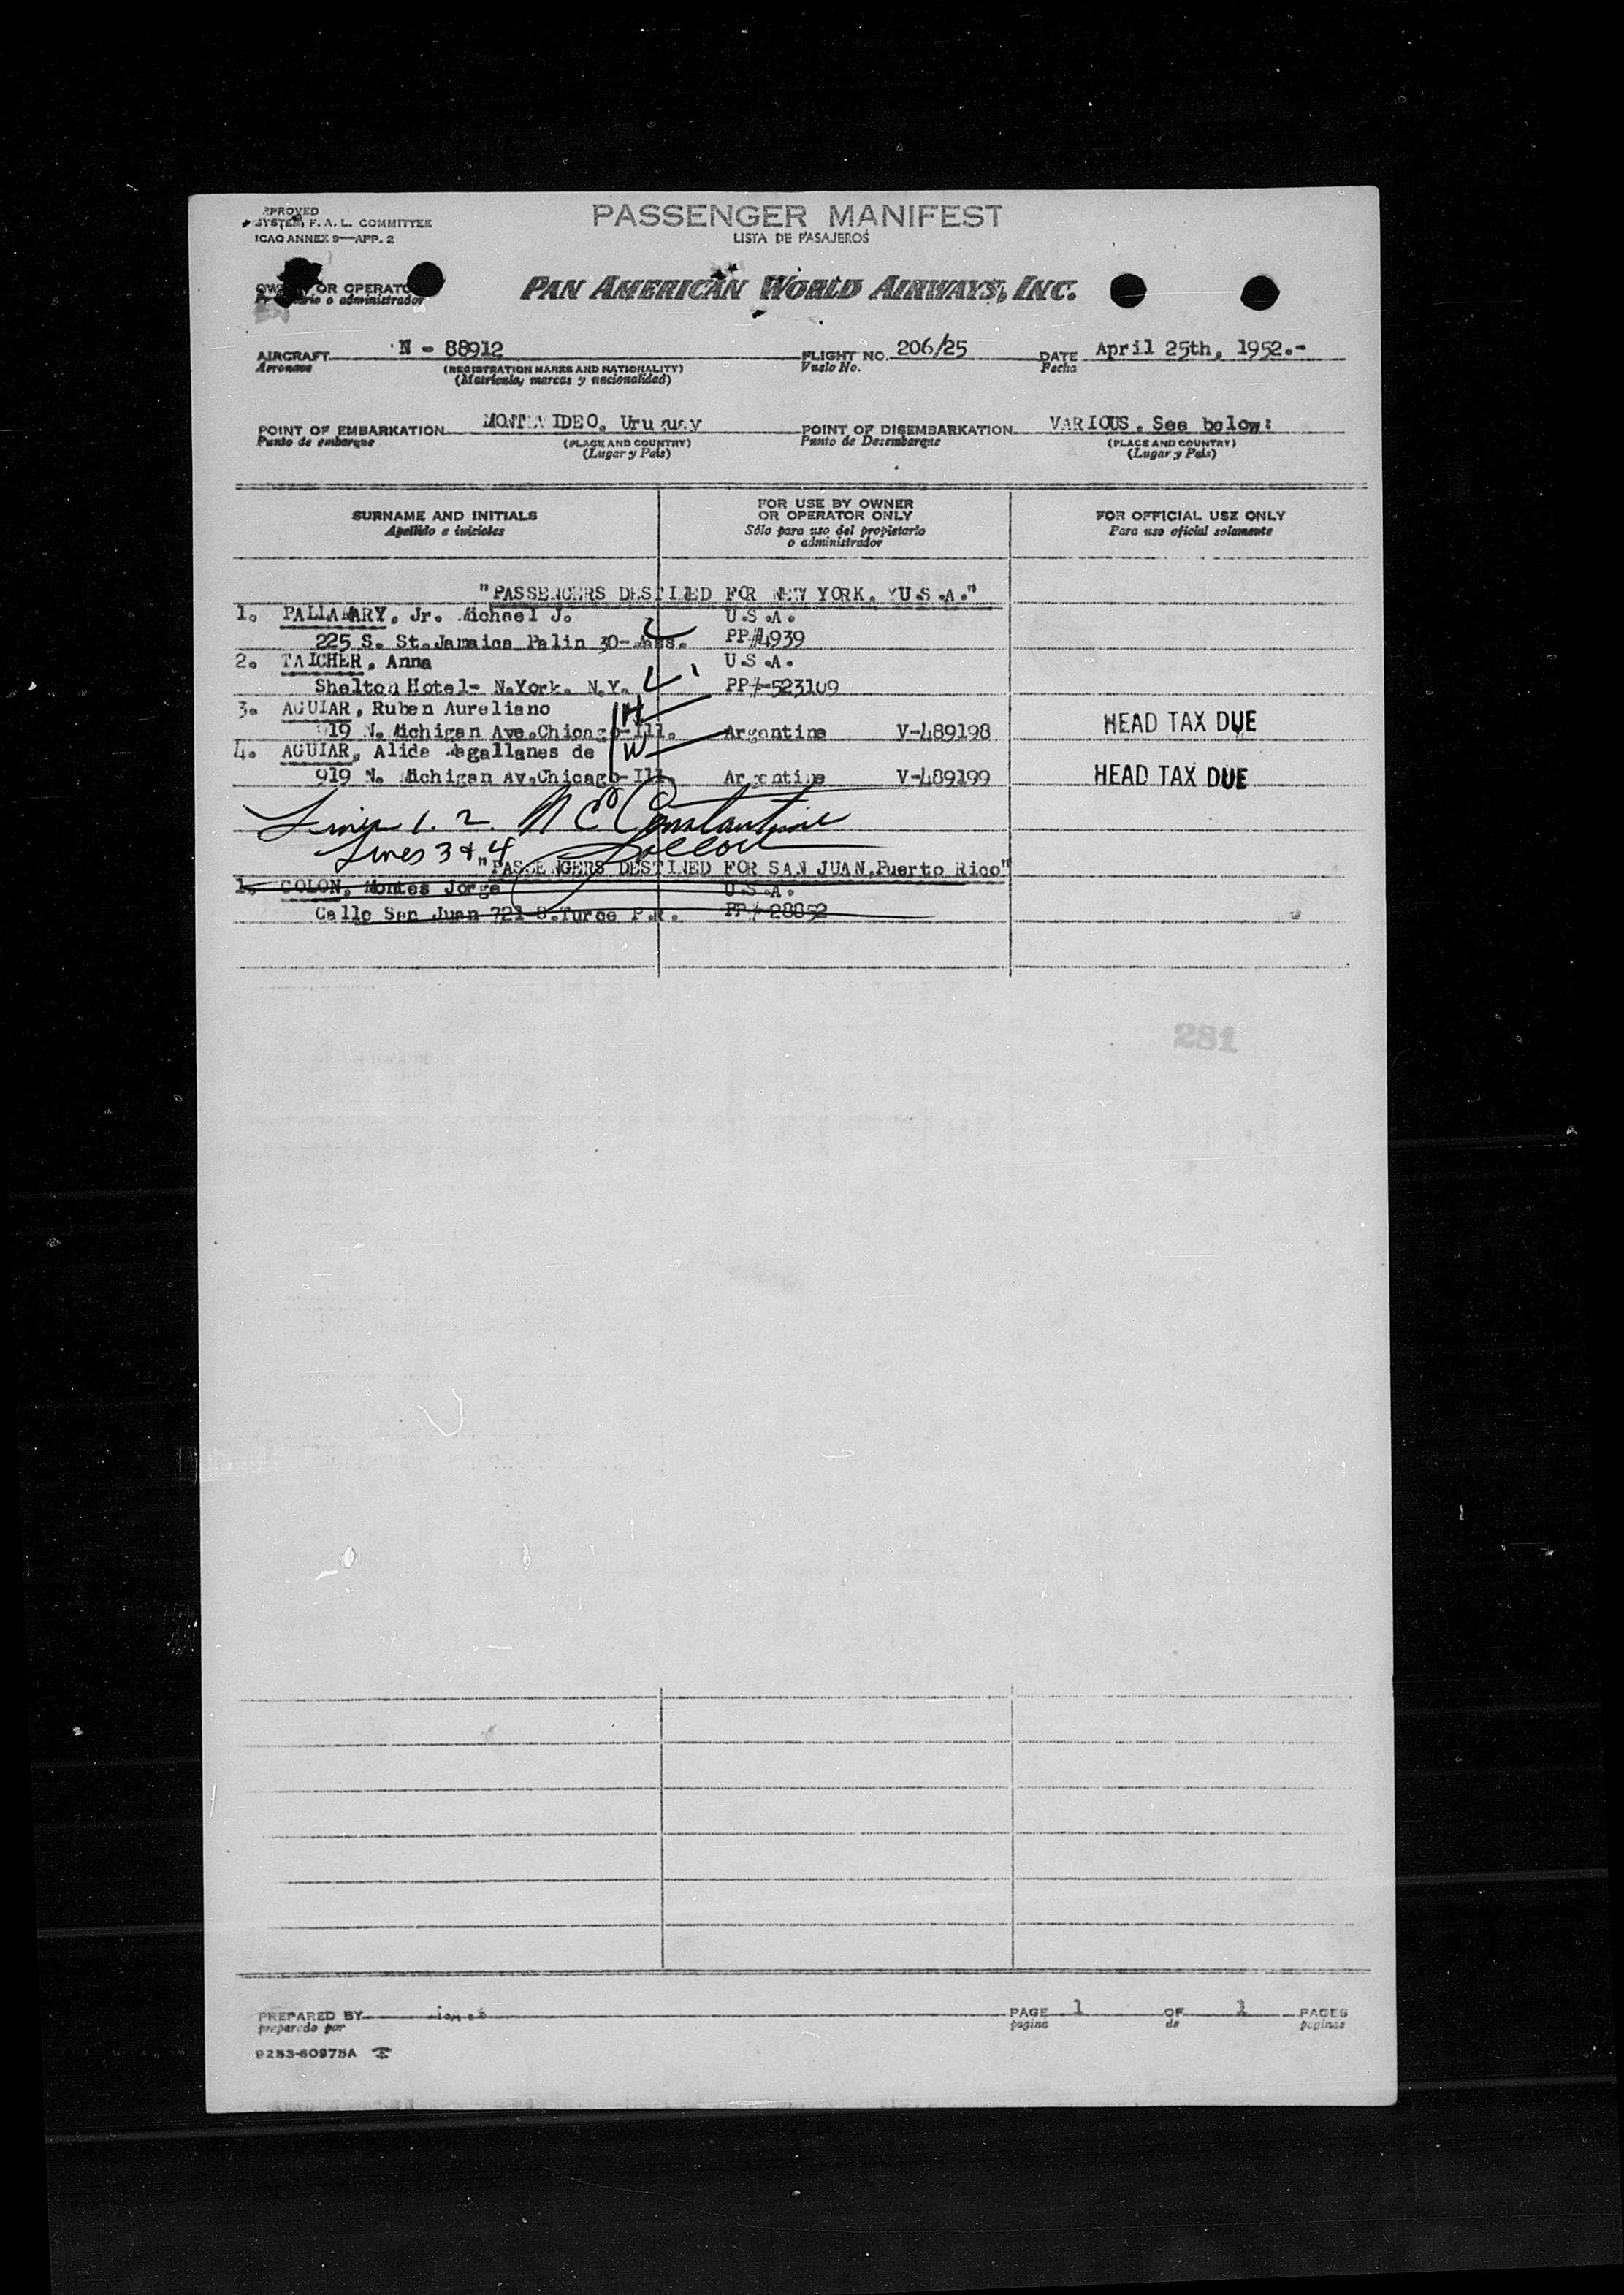 PASSENGER MANIFEST
LISTA DE PASAJEROS
SYSTEM, F. A. L. COMMITTEE
ICAO ANNEX 9—APP. 2
OR OPERATOR
o administrador
PAN AMERICAN WORLD AIRWAYS, INC.
AIRCRAFT N - 88912 FLIGHT NO. 206/25 DATE April 25th, 1952.-
Aeronave (REGISTRATION MARKS AND NATIONALITY) Vuelo No. Fecha
(Matricula, marcas y nacionalidad)
POINT OF EMBARKATION MONTEVIDEO, Uruguay POINT OF DISEMBARKATION VARIOUS. See below:
Punto de embarque (PLACE AND COUNTRY) Punto de Desembarque (PLACE AND COUNTRY)
(Lugar y País) (Lugar y País)
SURNAME AND INITIALS FOR USE BY OWNER OR OPERATOR ONLY FOR OFFICIAL USE ONLY
Apellido e iniciales Sólo para uso del propietario o administrador Para uso oficial solamente
"PASSENGERS DESTINED FOR NEW YORK, U.S.A."
1. PALLAMARY, Jr. Michael J. U.S.A.
225 S. St. Jamaica Palin 30-Mass. PP#4939
2. TAICHER, Anna U.S.A.
Shelton Hotel- N.York. N.Y. PP#-523109
3. AGUIAR, Ruben Aureliano H
919 N. Michigan Ave.Chicago-Ill. Argentine V-489198 HEAD TAX DUE
4. AGUIAR, Alida Magallanes de W
919 N. Michigan Av.Chicago-Ill. Argentine V-489199 HEAD TAX DUE
Lines 1. 2. N E Constantine
Lines 3 & 4
"PASSENGERS DESTINED FOR SAN JUAN,Puerto Rico"
1. COLON, Montes Jorge U.S.A.
Calle San Juan 721-S.Turce P.R. PP#-28852
281
PREPARED BY PAGE 1 OF 1 PAGES
preparado por pagina de paginas
9253-60975A